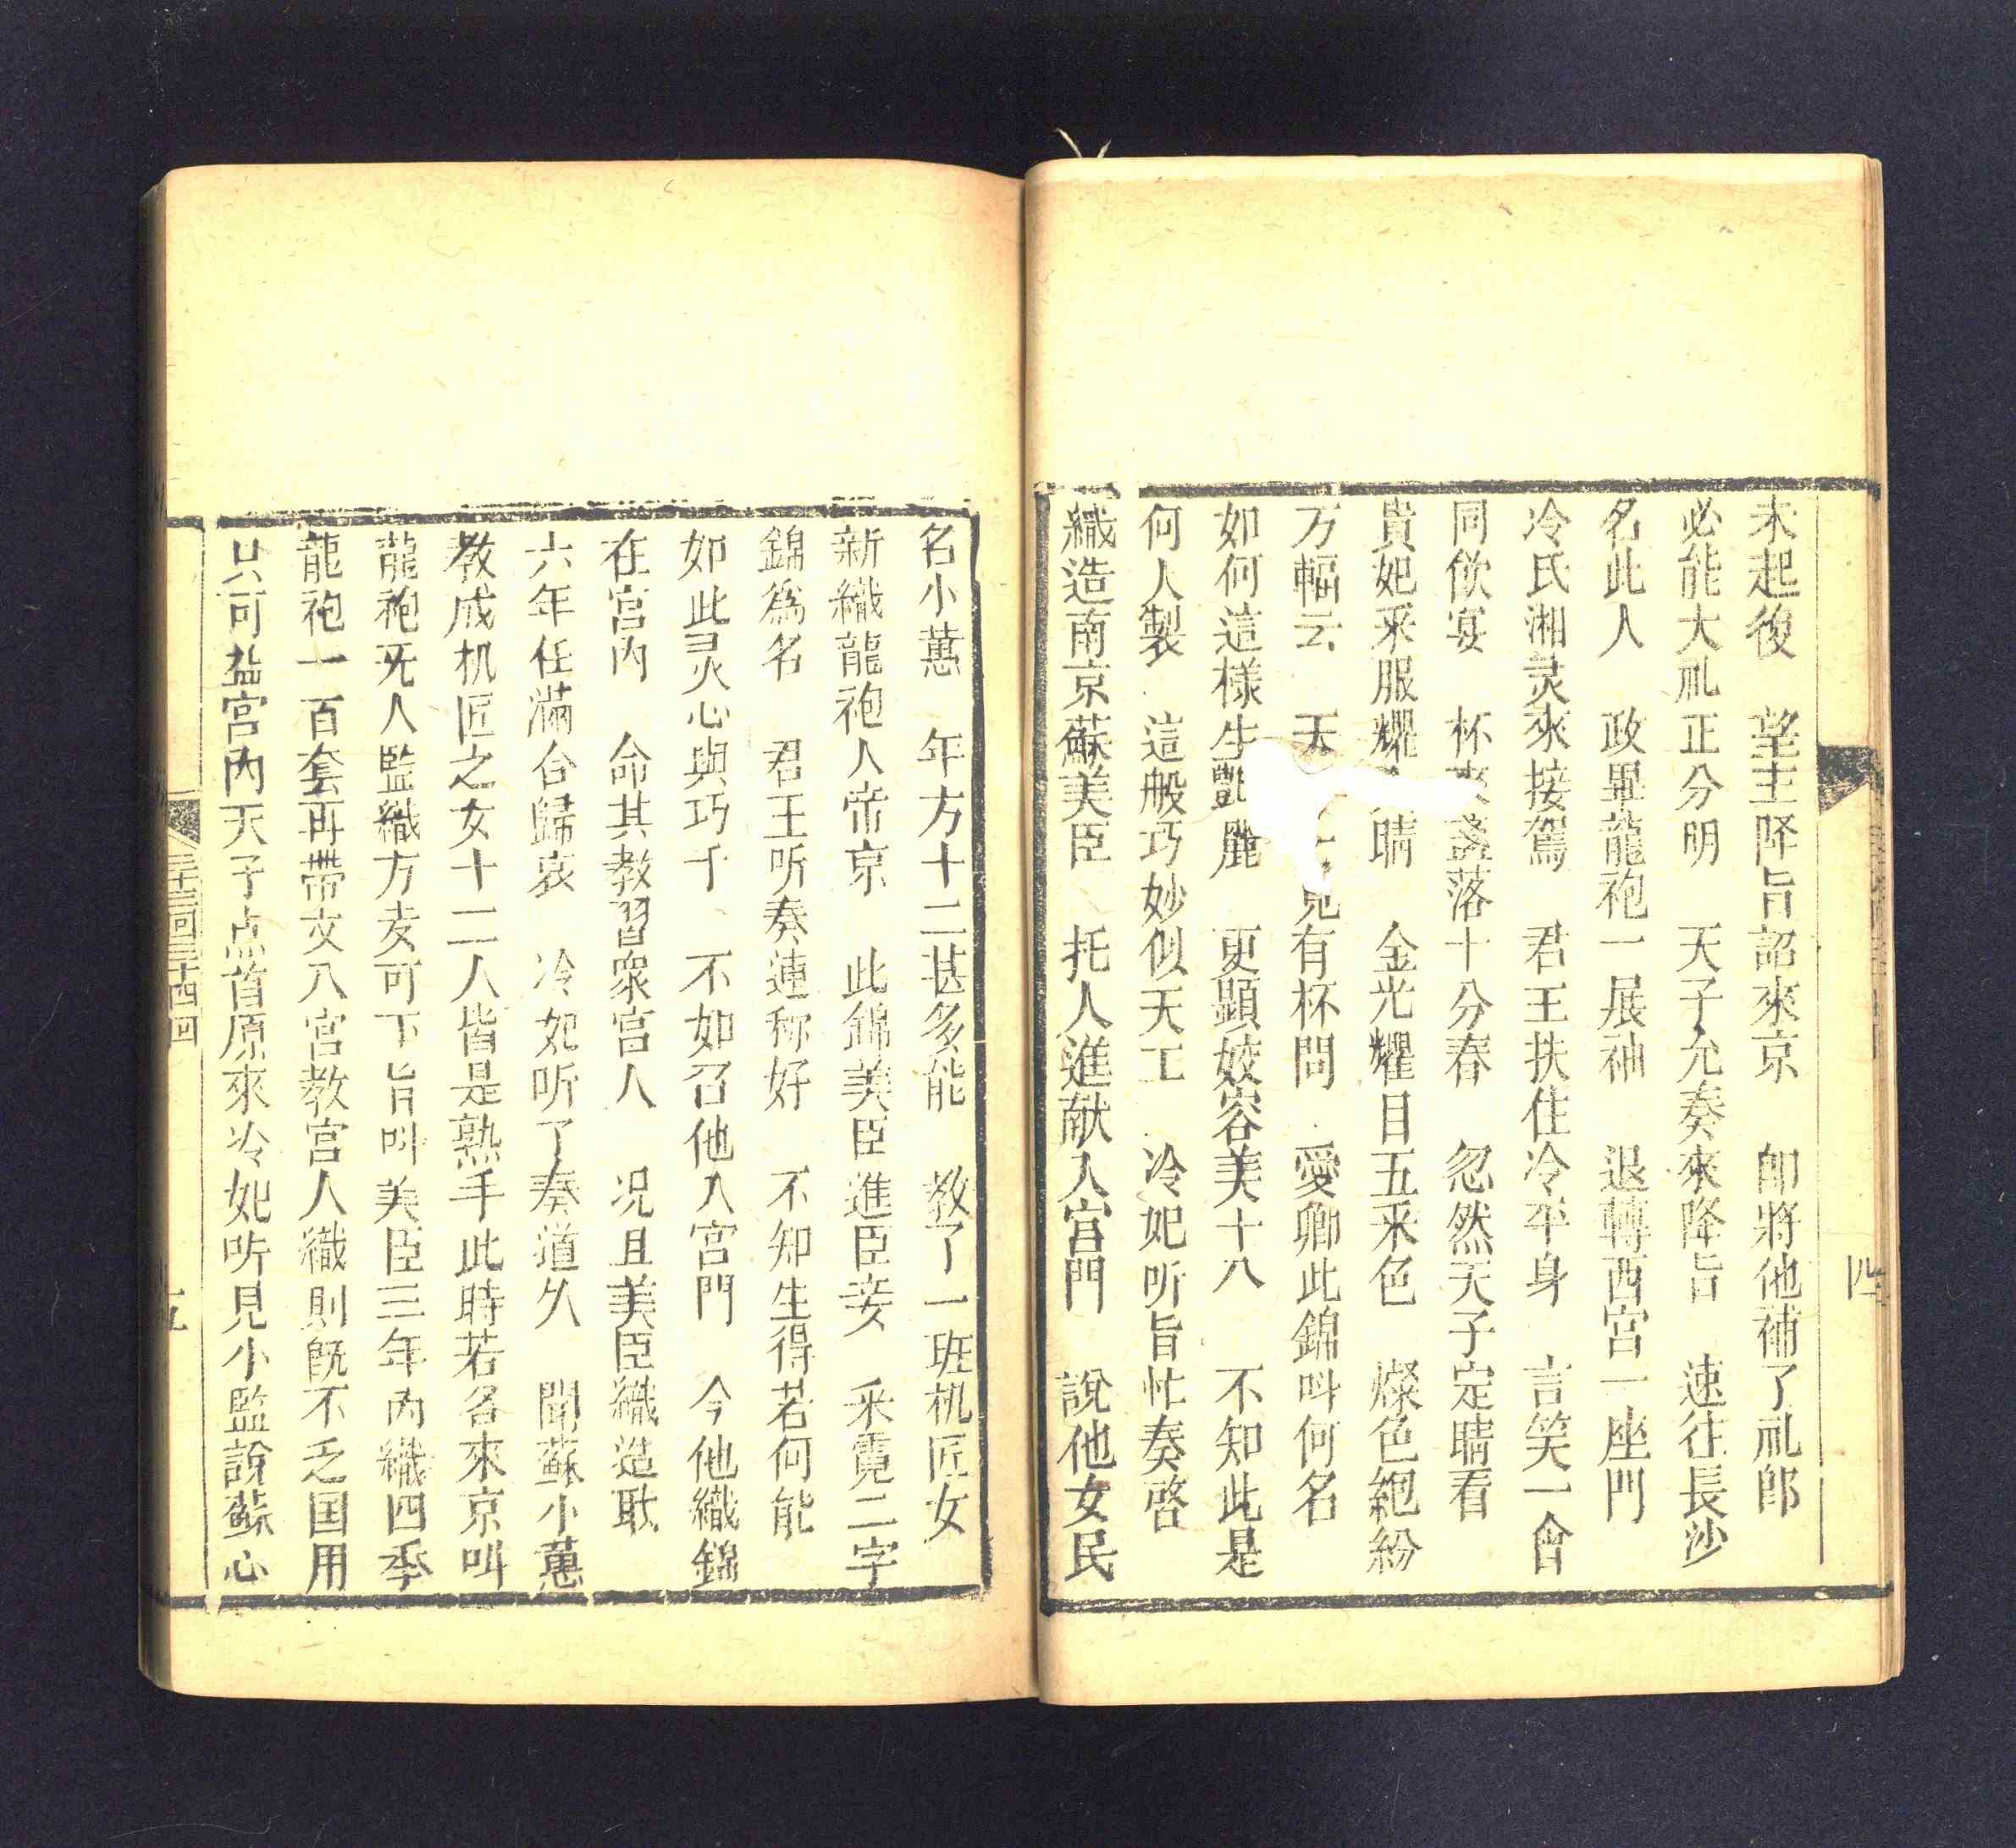 四
未起後　望主降旨詔來京　即將他補了礼郎
必能大礼正分明　天子允奏來降旨　速往長沙
名此人　政畢龍袍一展袖　退轉西宮一座門
冷氏湘灵來接駕　君王扶住冷平身　言笑一會
同飲宴　杯來盞落十分春　忽然天子定睛看
貴妃釆服耀　睛　金光耀目五釆色　燦色絕紛
万輻云　天　見有杯問　愛卿此錦叫何名
如何這樣生艷麗　更顯姣容美十八　不知此是
何人製　這般巧妙似天工　冷妃听旨忙奏啓
織造南京蘇美臣　托人進献入宮門　說他女民
名小蕙　年方十二甚多能　教了一班机匠女
新織龍袍人帝京　此錦美臣進臣妾　釆霓二字
錦為名　君王听奏連称好　不知生得若何能
如此灵心與巧千　不如召他入宮門　今他織錦
在宮內　命其教習衆宮人　况且美臣織造耿
六年任滿合歸哀　冷妃听了奏道久　聞蘇小蕙
教成机匠之女十二人皆是熟手此時若召來京叫
龍袍无人監織方妾可下旨叫美臣三年內織四季
龍袍一百套再帶文入宮教宮人織則既不乏国用
只可益宮內天子点首原來冷妃听見小監說蘇心
三十三回三十四回
五